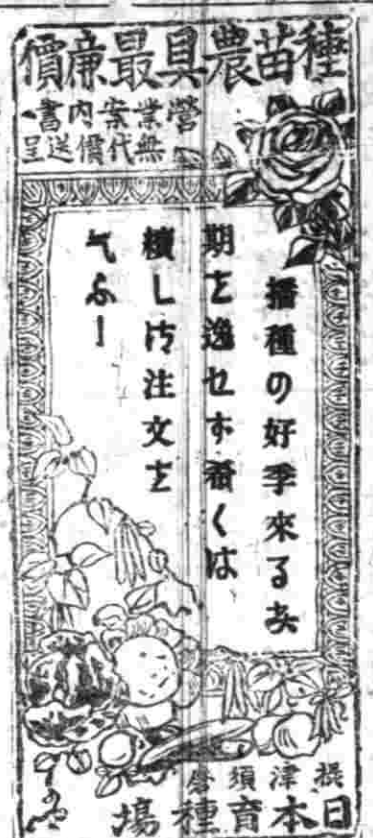 種苗農具最廉價
營業案内書ハ
無代償送呈
播種の好季來る
期を逸せず希くは
續し御注文を
乞ふ！
摂津須磨
日本育種場